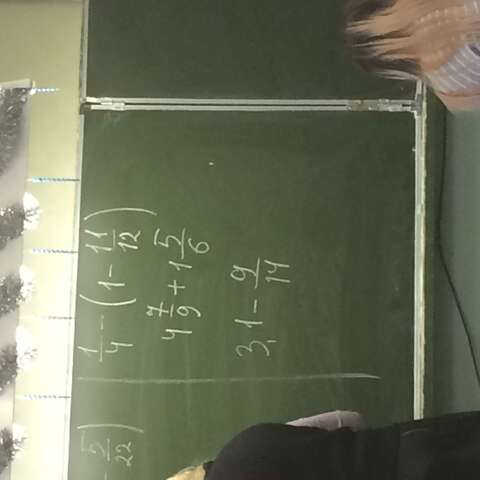 1/4 - (1 - 11/12)
4 7/9 + 1 5/6
3,1 - 9/14
- 5/22)